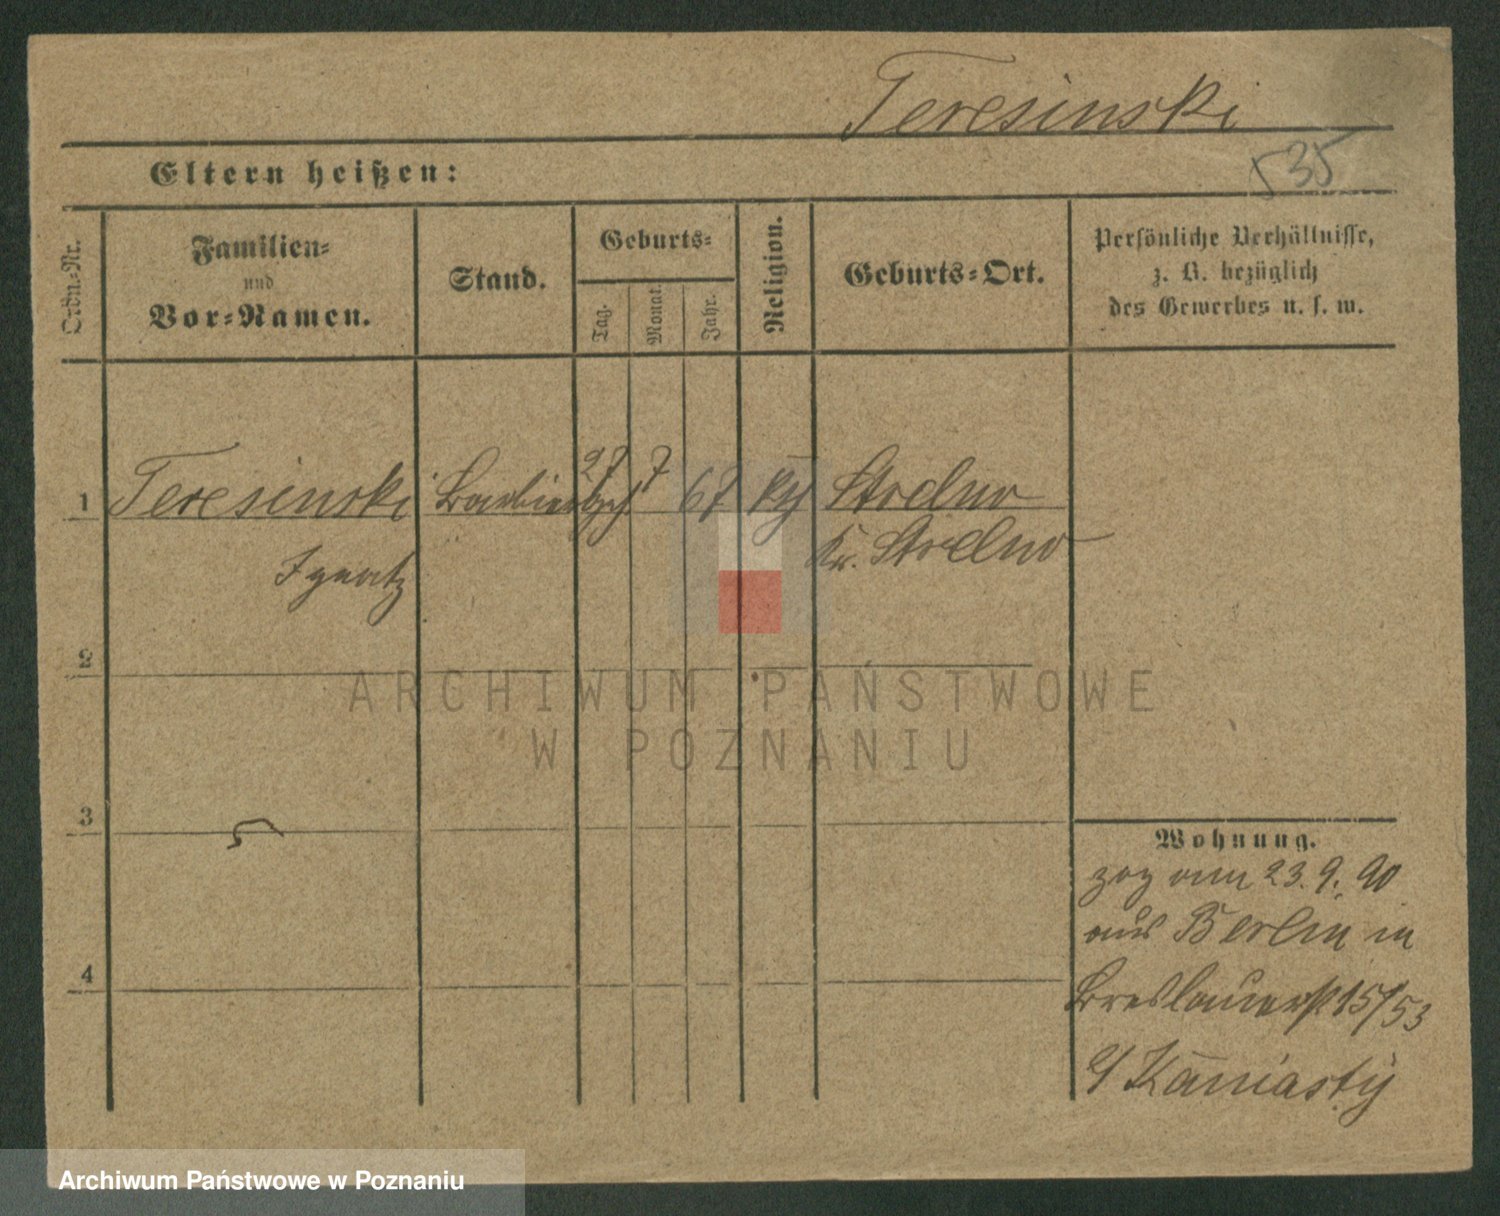 Teresinski
535
Eltern heißen:
Ordn.-Nr.
Familien-
und
Vor-Namen.
Stand.
Geburts-
Tag.
Monat.
Jahr.
Religion.
Geburts-Ort.
Persönliche Verhältnisse,
z. B. bezüglich
des Gewerbes u. s. w.
1 Teresinski Barbier 27 7 67 Strelno
Ignatz Kr. Strelno
2
3
4
Wohnung.
zog am 23.9.90
aus Berlin in
Breslauerstr 15/53
b/ Kaniasty
ARCHIWUM PAŃSTWOWE
W POZNANIU
Archiwum Państwowe w Poznaniu